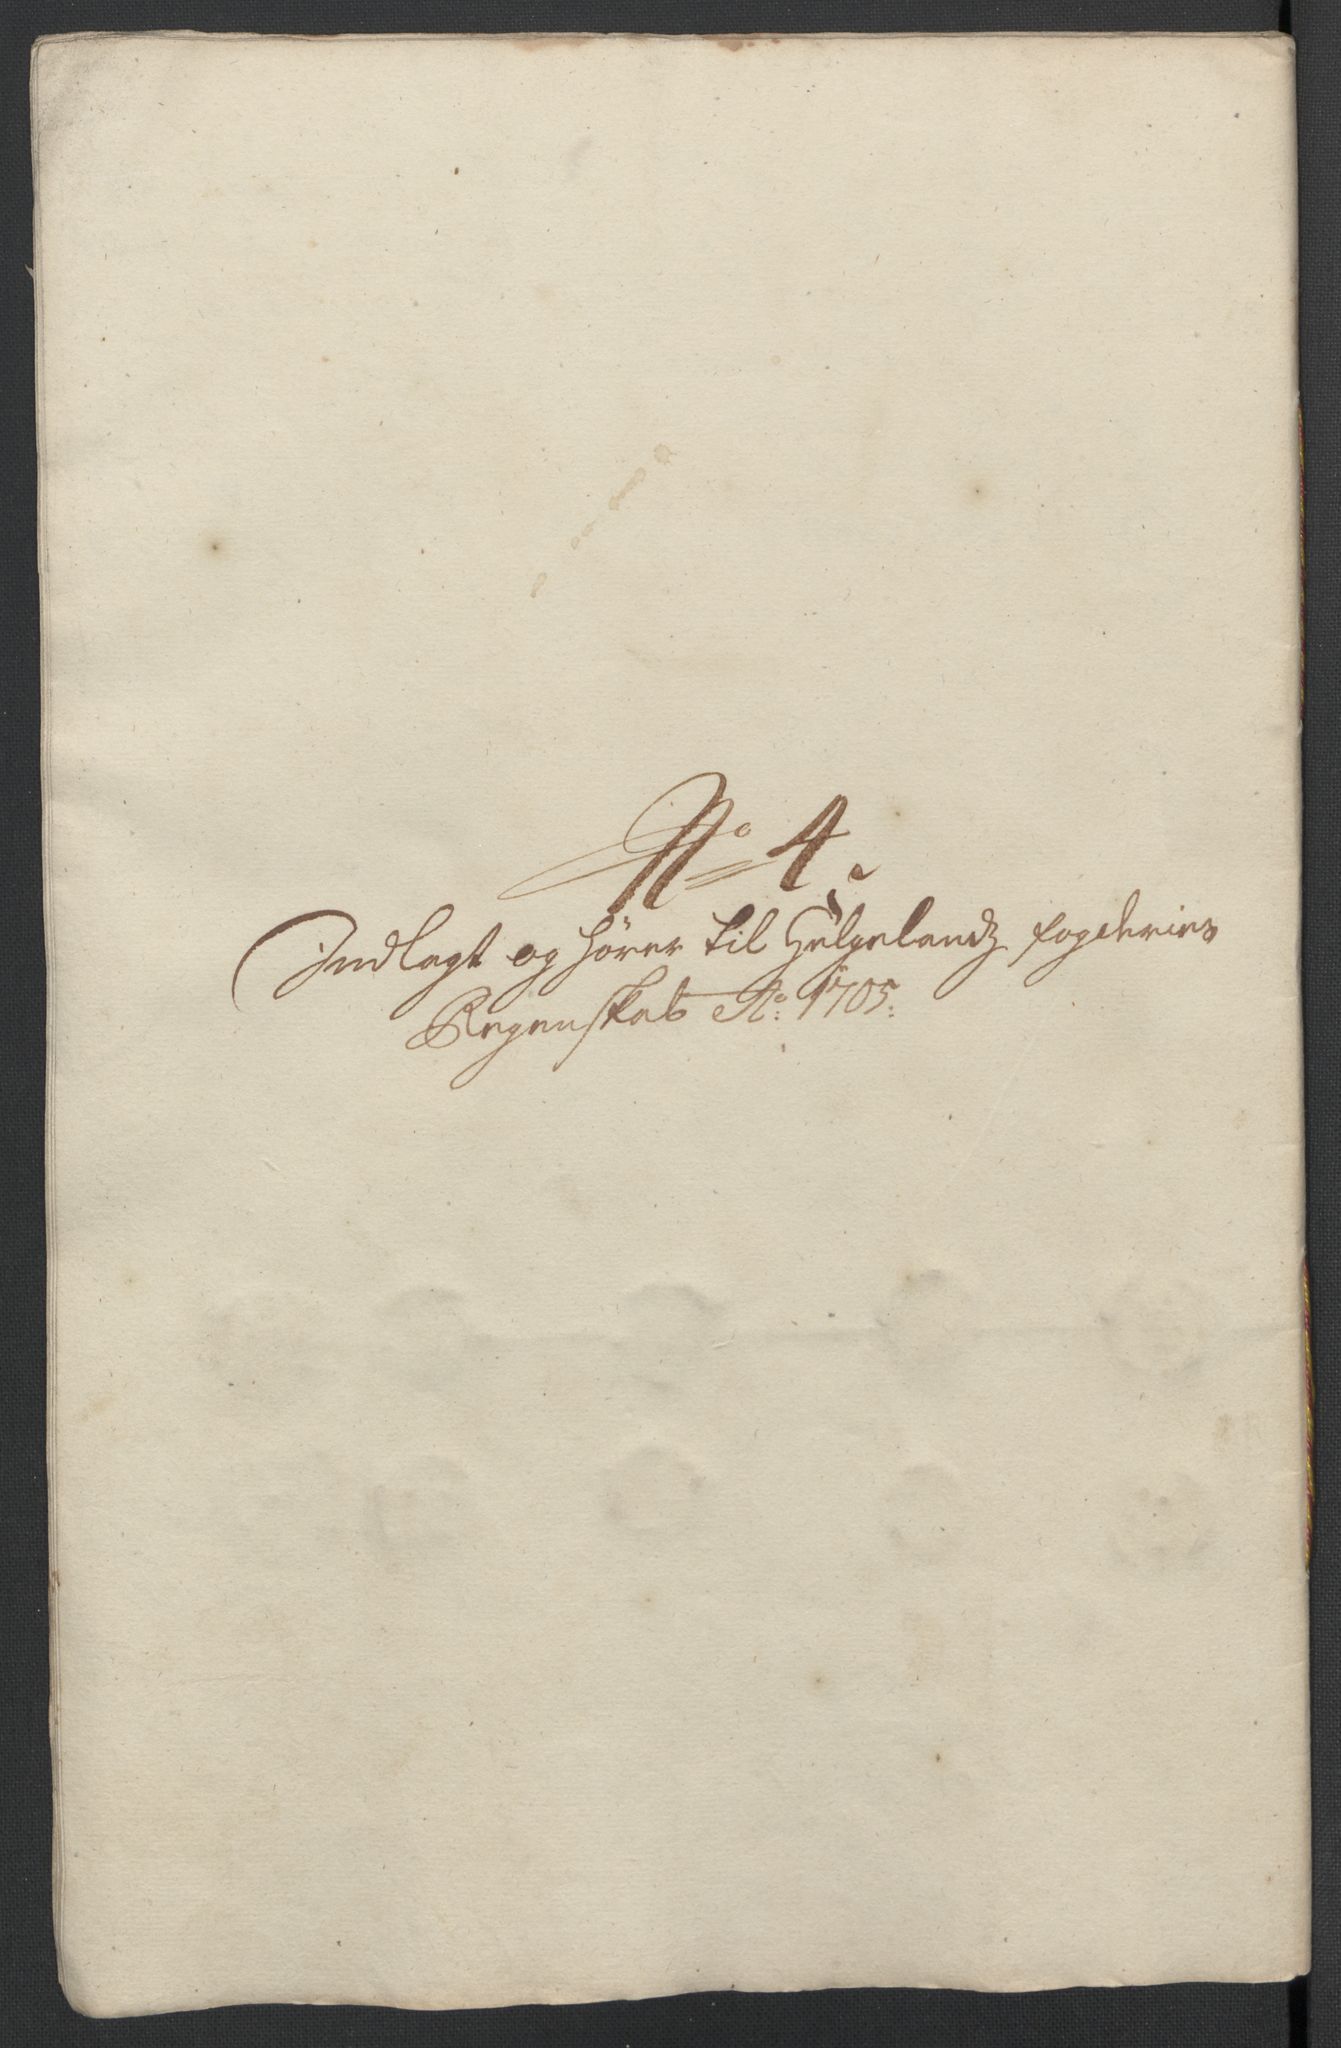 No 4.
Indlagt og hører til Helgelandz fogderies
Regenskab Ao: 1705: